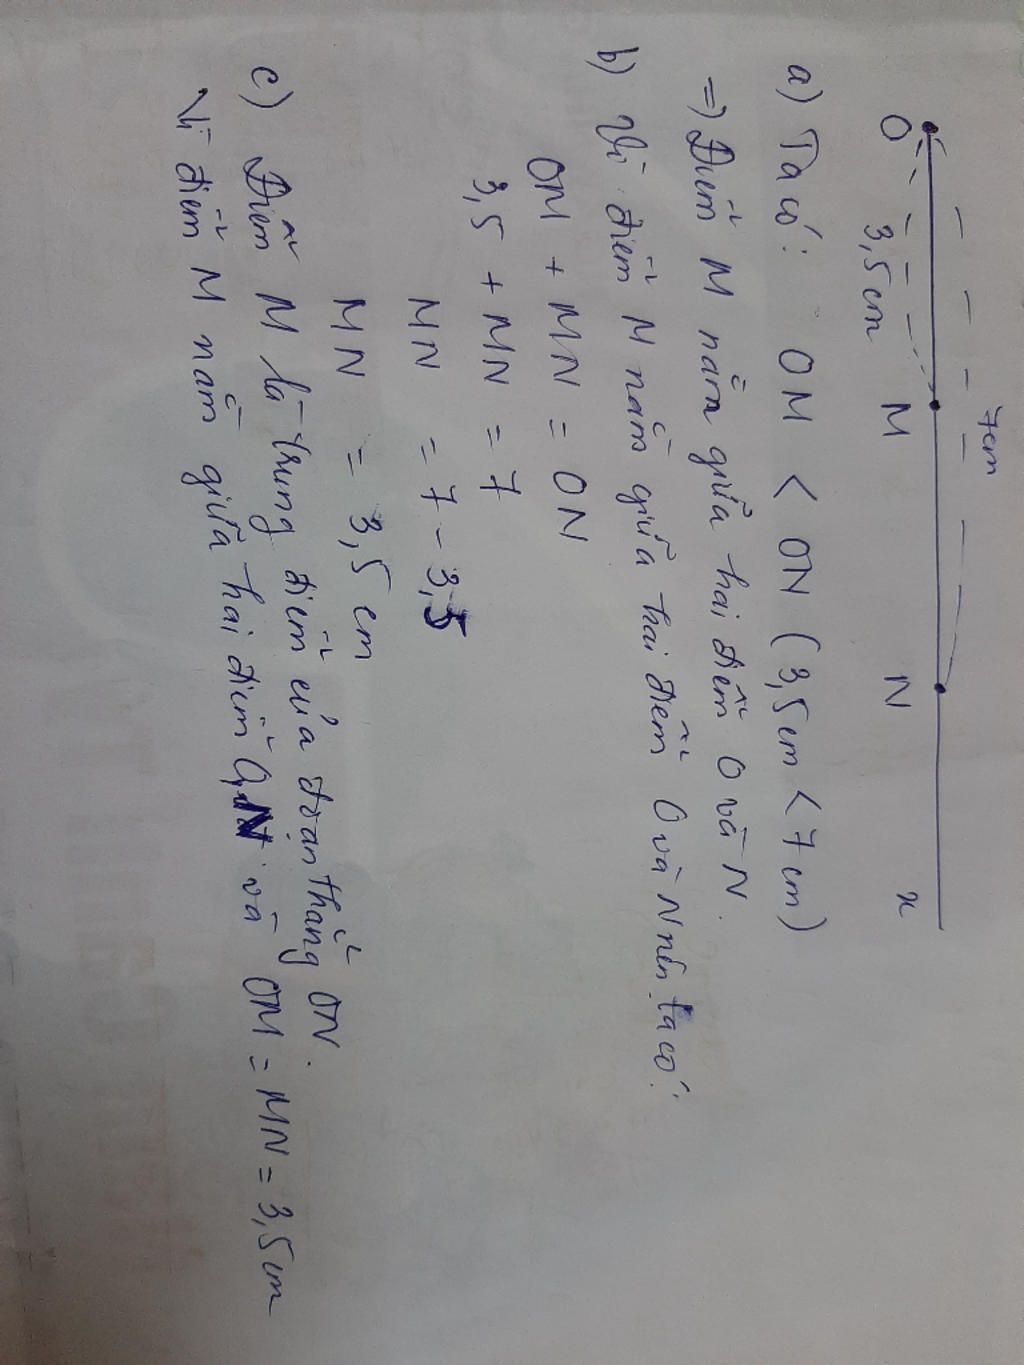 7cm
O 3,5cm M N x
a) Ta có: OM < ON (3,5cm < 7cm)
=> Điểm M nằm giữa hai điểm O và N.
b) Vì điểm M nằm giữa hai điểm O và N nên ta có:
OM + MN = ON
3,5 + MN = 7
MN = 7 - 3,5
MN = 3,5 cm
c) Điểm M là trung điểm của đoạn thẳng ON.
Vì điểm M nằm giữa hai điểm O, N và OM = MN = 3,5cm